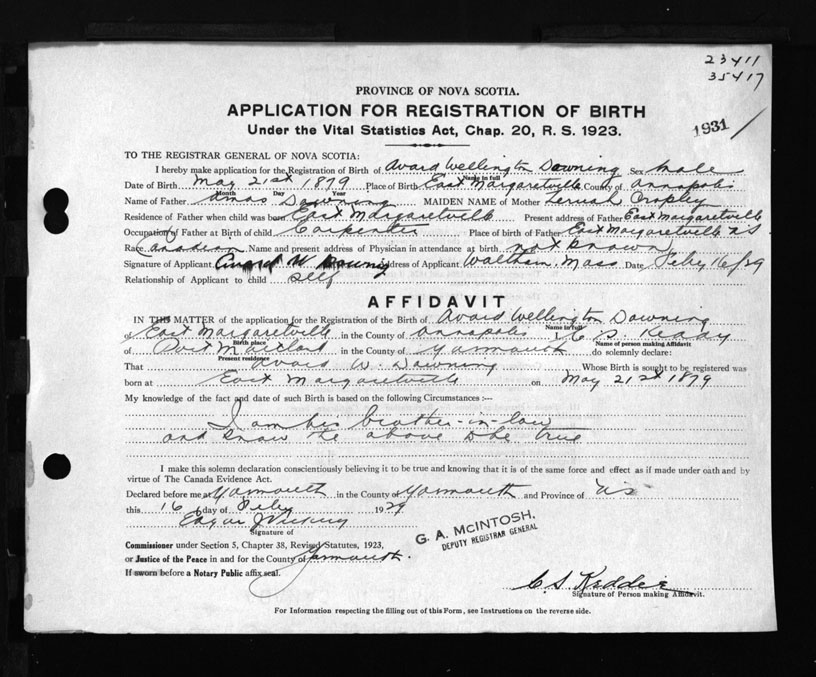 23411
35417
PROVINCE OF NOVA SCOTIA.
APPLICATION FOR REGISTRATION OF BIRTH
Under the Vital Statistics Act, Chap. 20, R. S. 1923.
1931
TO THE REGISTRAR GENERAL OF NOVA SCOTIA:
I hereby make application for the Registration of Birth of Avard Wellington Downing Sex male
Name in full
Date of Birth May 21st 1879 Place of Birth East Margaretville County of Annapolis
Month Day Year
Name of Father Amos Downing MAIDEN NAME of Mother Cropley
Residence of Father when child was born East Margaretville Present address of Father East Margaretville
Occupation of Father at Birth of child Carpenter Place of birth of Father East Margaretville N S
Race Canadian Name and present address of Physician in attendance at birth not known
Signature of Applicant Avard W Downing Address of Applicant Waltham, Mass Date Feby 16/29
Relationship of Applicant to child self
AFFIDAVIT
IN THE MATTER of the application for the Registration of the Birth of Avard Wellington Downing
Name in full
of East Margaretville in the County of Annapolis I C. S.
Birth place Name of person making Affidavit
of Port Maitland in the County of Yarmouth do solemnly declare:
Present residence
That Avard W. Downing Whose Birth is sought to be registered was
born at East Margaretville on May 21st 1879
My knowledge of the fact and date of such Birth is based on the following Circumstances :—
I am his brother-in-law
and know the above to be true
I make this solemn declaration conscientiously believing it to be true and knowing that it is of the same force and effect as if made under oath and by
virtue of The Canada Evidence Act.
Declared before me at Yarmouth in the County of Yarmouth and Province of N S
this 16 day of Feby 1929
Edgar
Signature of
Commissioner under Section 5, Chapter 38, Revised Statutes, 1923,
or Justice of the Peace in and for the County of Yarmouth.
If sworn before a Notary Public affix seal.
G. A. McINTOSH,
DEPUTY REGISTRAR GENERAL
C. S.
Signature of Person making Affidavit.
For Information respecting the filling out of this Form, see Instructions on the reverse side.